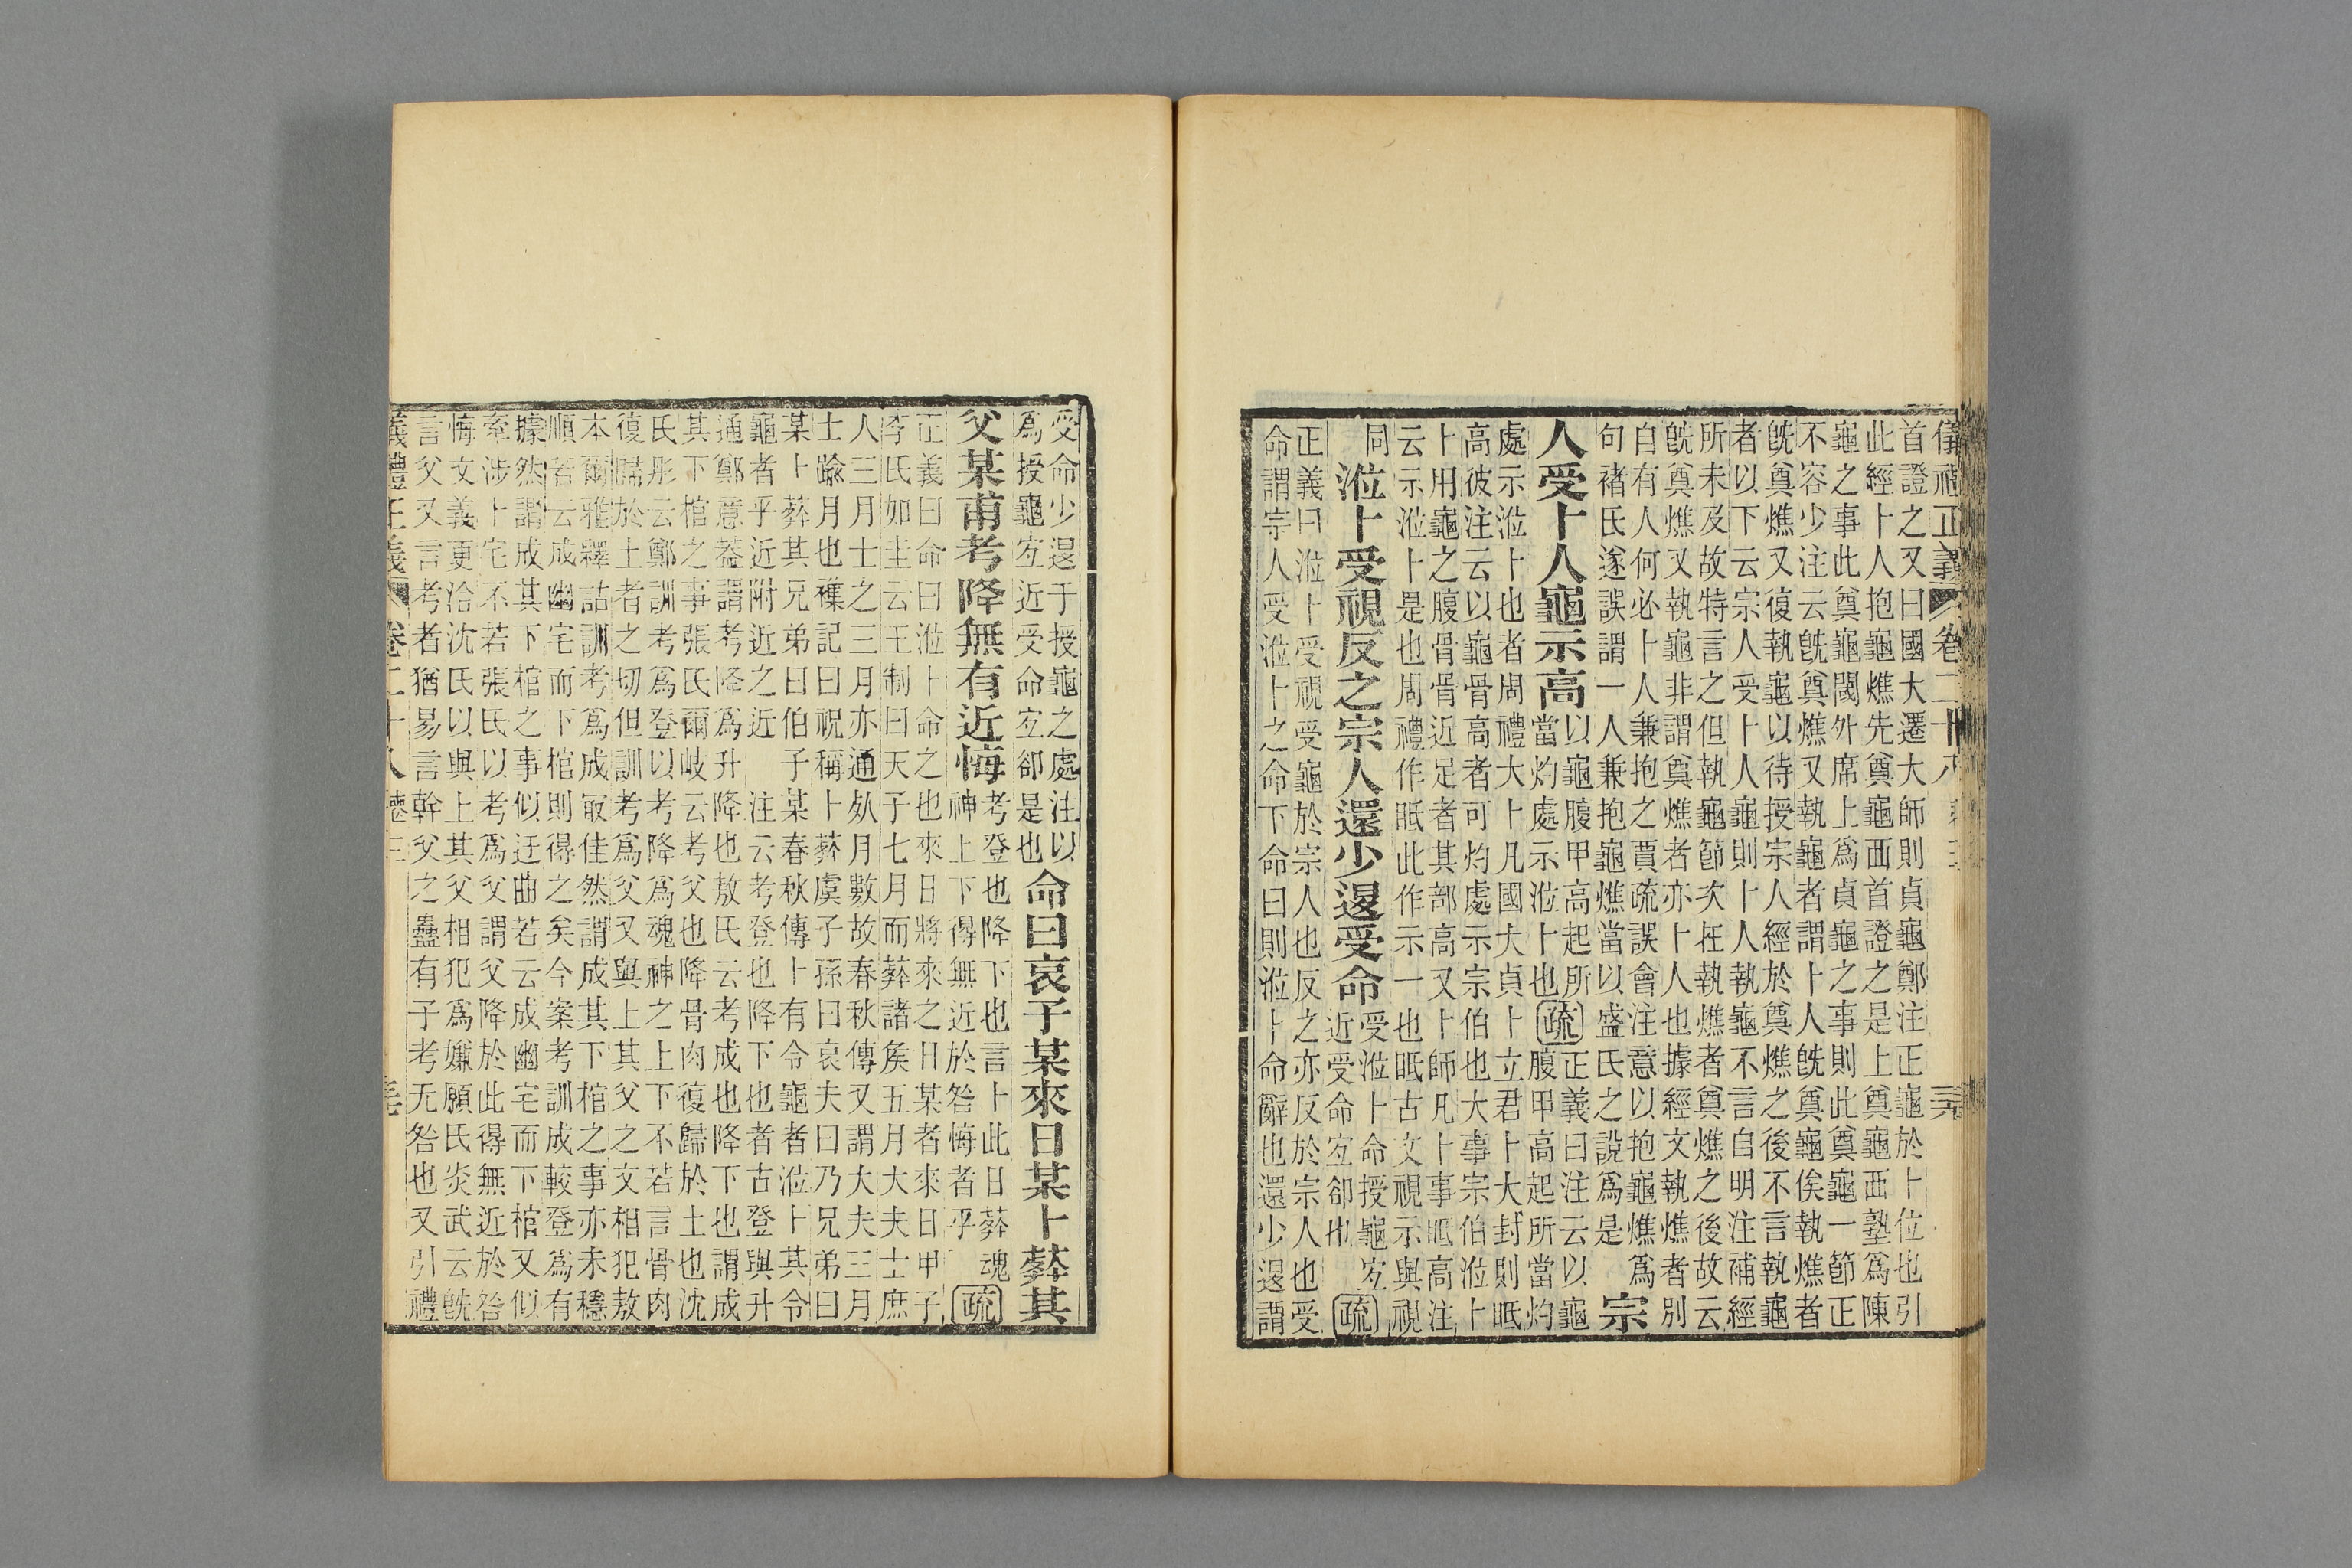 儀禮正義 卷二十八 三六
首證之又曰國大遷大師則貞龜鄭注正龜於卜位也引
此經卜人抱龜燋先奠龜西首證之是上奠龜西塾爲陳
龜之事此奠龜閾外席上爲貞龜之事則此奠龜一節正
不容少注云旣奠燋又執龜者謂卜人旣奠龜俟執燋者
旣奠燋又復執龜以待授宗人經於奠燋之後不言執龜
者以下云宗人受卜人龜則卜人執龜不言自明注補經
所未及故特言之但執龜節次在執燋者奠燋之後故云
旣奠燋又執龜非謂奠燋者亦卜人也據經文執燋者別
自有人何必卜人兼抱之賈疏誤會注意以抱龜燋爲
句褚氏遂誤謂一人兼抱龜燋當以盛氏之說爲是 宗
人受卜人龜示高 以龜腹甲高起所當灼處示涖卜也 疏 正義曰注云以龜腹甲高起所當灼
處示涖卜也者周禮大卜凡國大貞卜立君卜大封則眡
高彼注云以龜骨高者可灼處示宗伯也大事宗伯涖卜
卜用龜之腹骨骨近足者其部高又卜師凡卜事眡高注
云示涖卜是也周禮作眡此作示一也眡古文視示與視
同
涖卜受視反之宗人還少退受命 受涖卜命授龜宜近受命宜卻也 疏
正義曰涖卜受視受龜於宗人也反之亦反於宗人也受
命謂宗人受涖卜之命下命曰則涖卜命辭也還少退謂
受命少退于授龜之處注以
爲授龜宜近受命宜卻是也 命曰哀子某來日某卜葬其
父某甫考降無有近悔 考登也降下也言卜此日葬魂神上下得無近於咎悔者乎 疏
正義曰命曰涖卜命之也來日將來之日某者來日甲子
李氏如圭云王制曰天子七月而葬諸侯五月大夫士庶
人三月士之三月亦通死月數故春秋傳又謂大夫三月
士踰月也襍記曰祝稱卜葬虞子孫曰哀夫曰乃兄弟曰
某卜葬其兄弟曰伯子某春秋傳卜有令龜者涖卜其令
龜者乎近附近之近 注云考登也降下也者古登與升
通鄭意葢謂考降爲升降也敖氏云考成也降下也謂成
其下棺之事張氏爾岐云考父也降骨肉復歸於土也沈
氏彤云鄭訓考爲登以考降爲魂神之上下不若言骨肉
復歸於土者之切但訓考爲父又與上其父之文相犯敖
本爾雅釋詁訓考爲成最佳然謂成其下棺之事亦未穩
順若云成幽宅而下棺則得之矣今案考訓成較登爲有
據然謂成其下棺之事似迂曲若云成幽宅而下棺又似
牽涉卜宅不若張氏以考爲父謂父降於此得無近於咎
悔文義更洽沈氏以與上其父相犯爲嫌願氏炎武云旣
言父又言考者猶易言幹父之蠱有子考无咎也又引禮